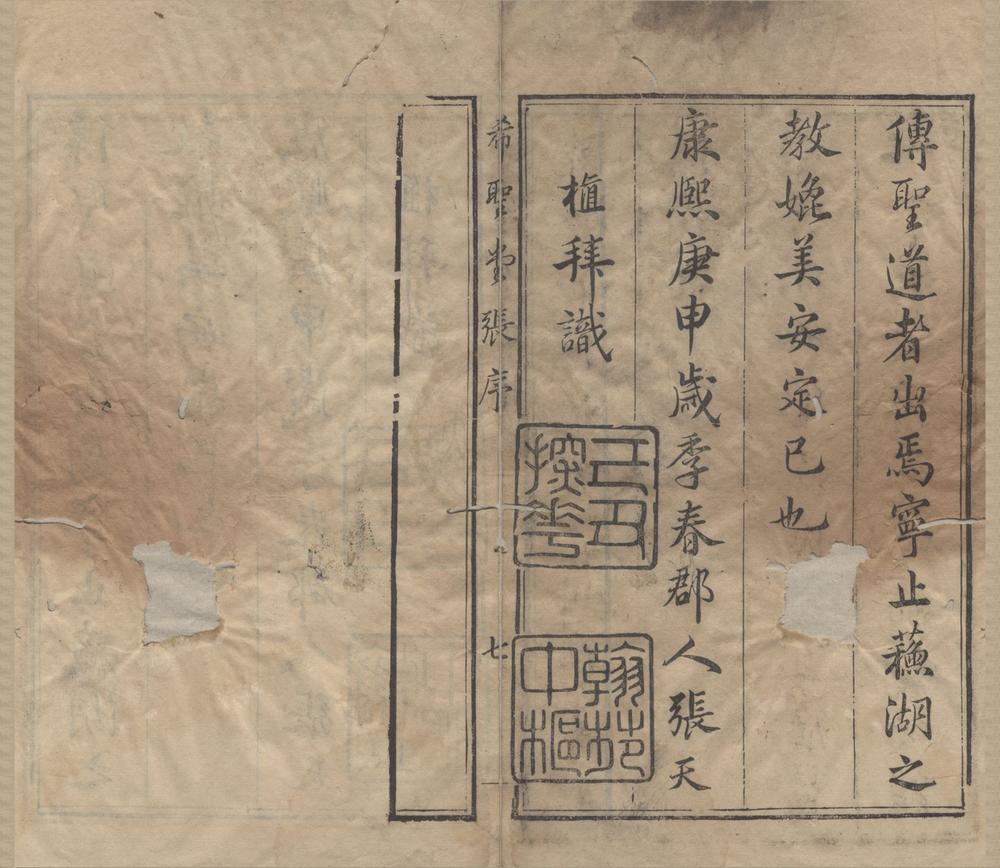 傳聖道者出焉寧止蘓湖之
教媲美安定已也
康熈庚申歲季春郡人張天
植拜識
己丑探花
翰苑中樞
希聖堂張序
七